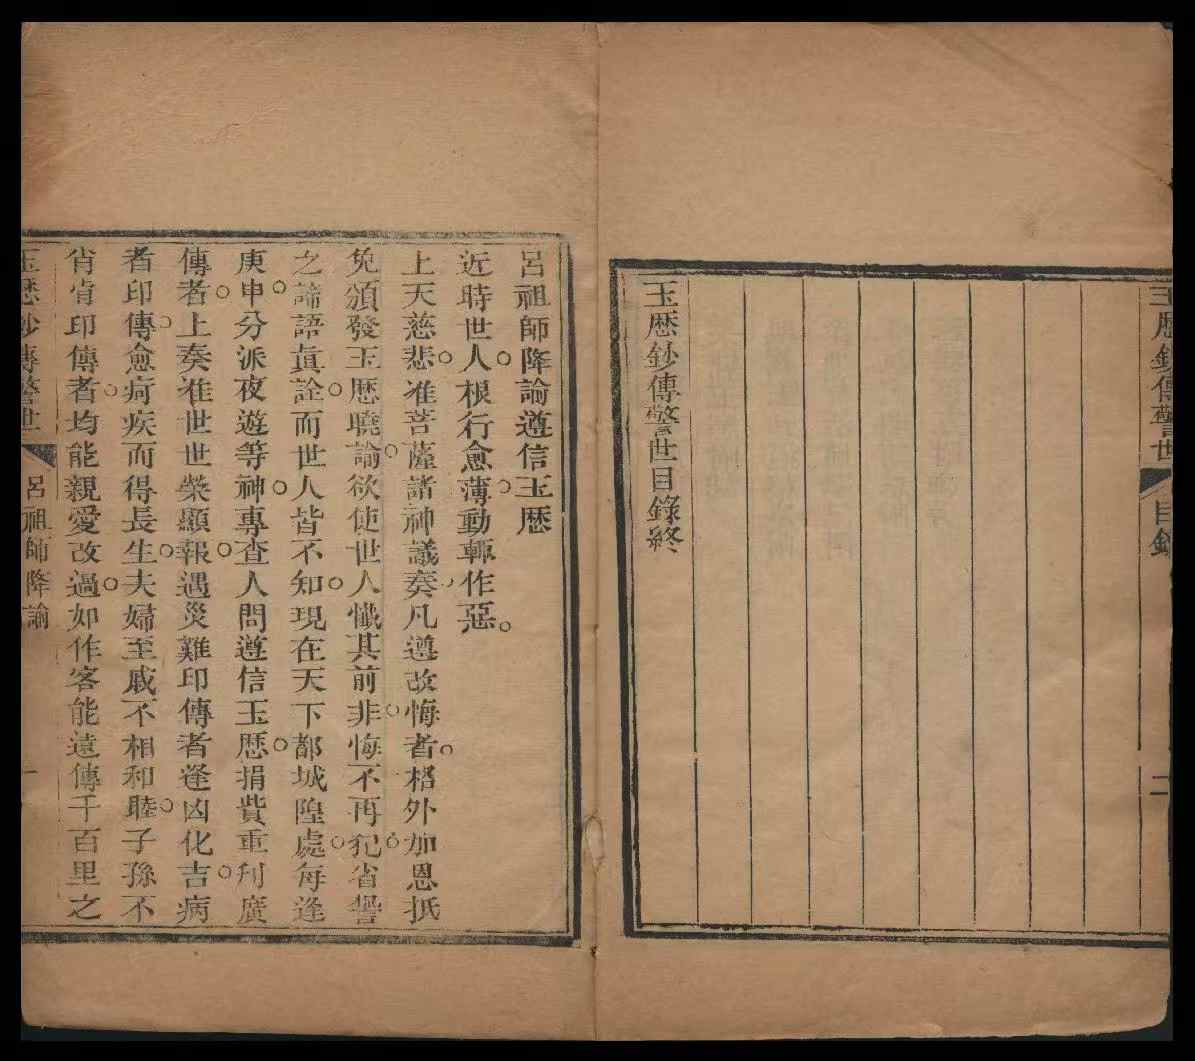 玉厯鈔傳警世
目錄
二
玉厯鈔傳警世目錄終
呂祖師降諭遵信玉厯
近時世人。根行愈薄。動輒作惡。
上天慈悲。准菩薩諸神議奏、凡遵改悔者。格外加恩抵
免頒發玉厯曉諭。欲使世人懺其前非。悔不再犯。省譽
之諦語眞詮。而世人皆不知。現在天下都城隍處。每逢
庚申。分派夜遊等神。專查人間遵信玉厯。捐貲重刋廣
傳者。上奏准世世榮顯報。遇災難印傳者逢凶化吉。病
者印傳。愈疴疾而得長生。夫婦至戚不相和睦。子孫不
肖肯印傳者。均能親愛改過。如作客能遠傳千百里之
玉厯鈔傳警世
呂祖師降諭
一